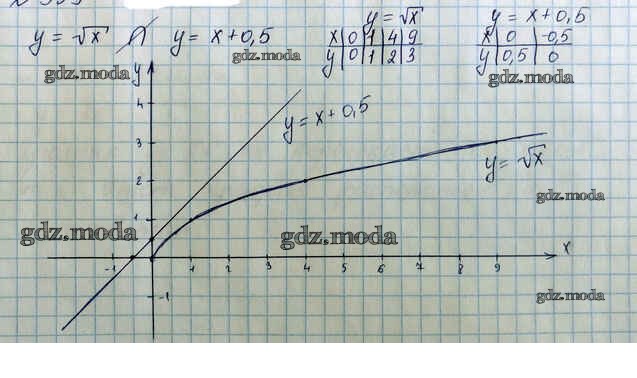 y = √x
y = x + 0,5
y = √x ⋂ y = x + 0,5
x 0 1 4 9
y 0 1 2 3
x 0 -0,5
y 0,5 0
gdz.moda
gdz.moda
gdz.moda
y
4
3
2
1
y = x + 0,5
y = √x
gdz.moda
gdz.moda
gdz.moda
-1 1 2 3 4 5 6 7 8 9 x
-1
gdz.moda